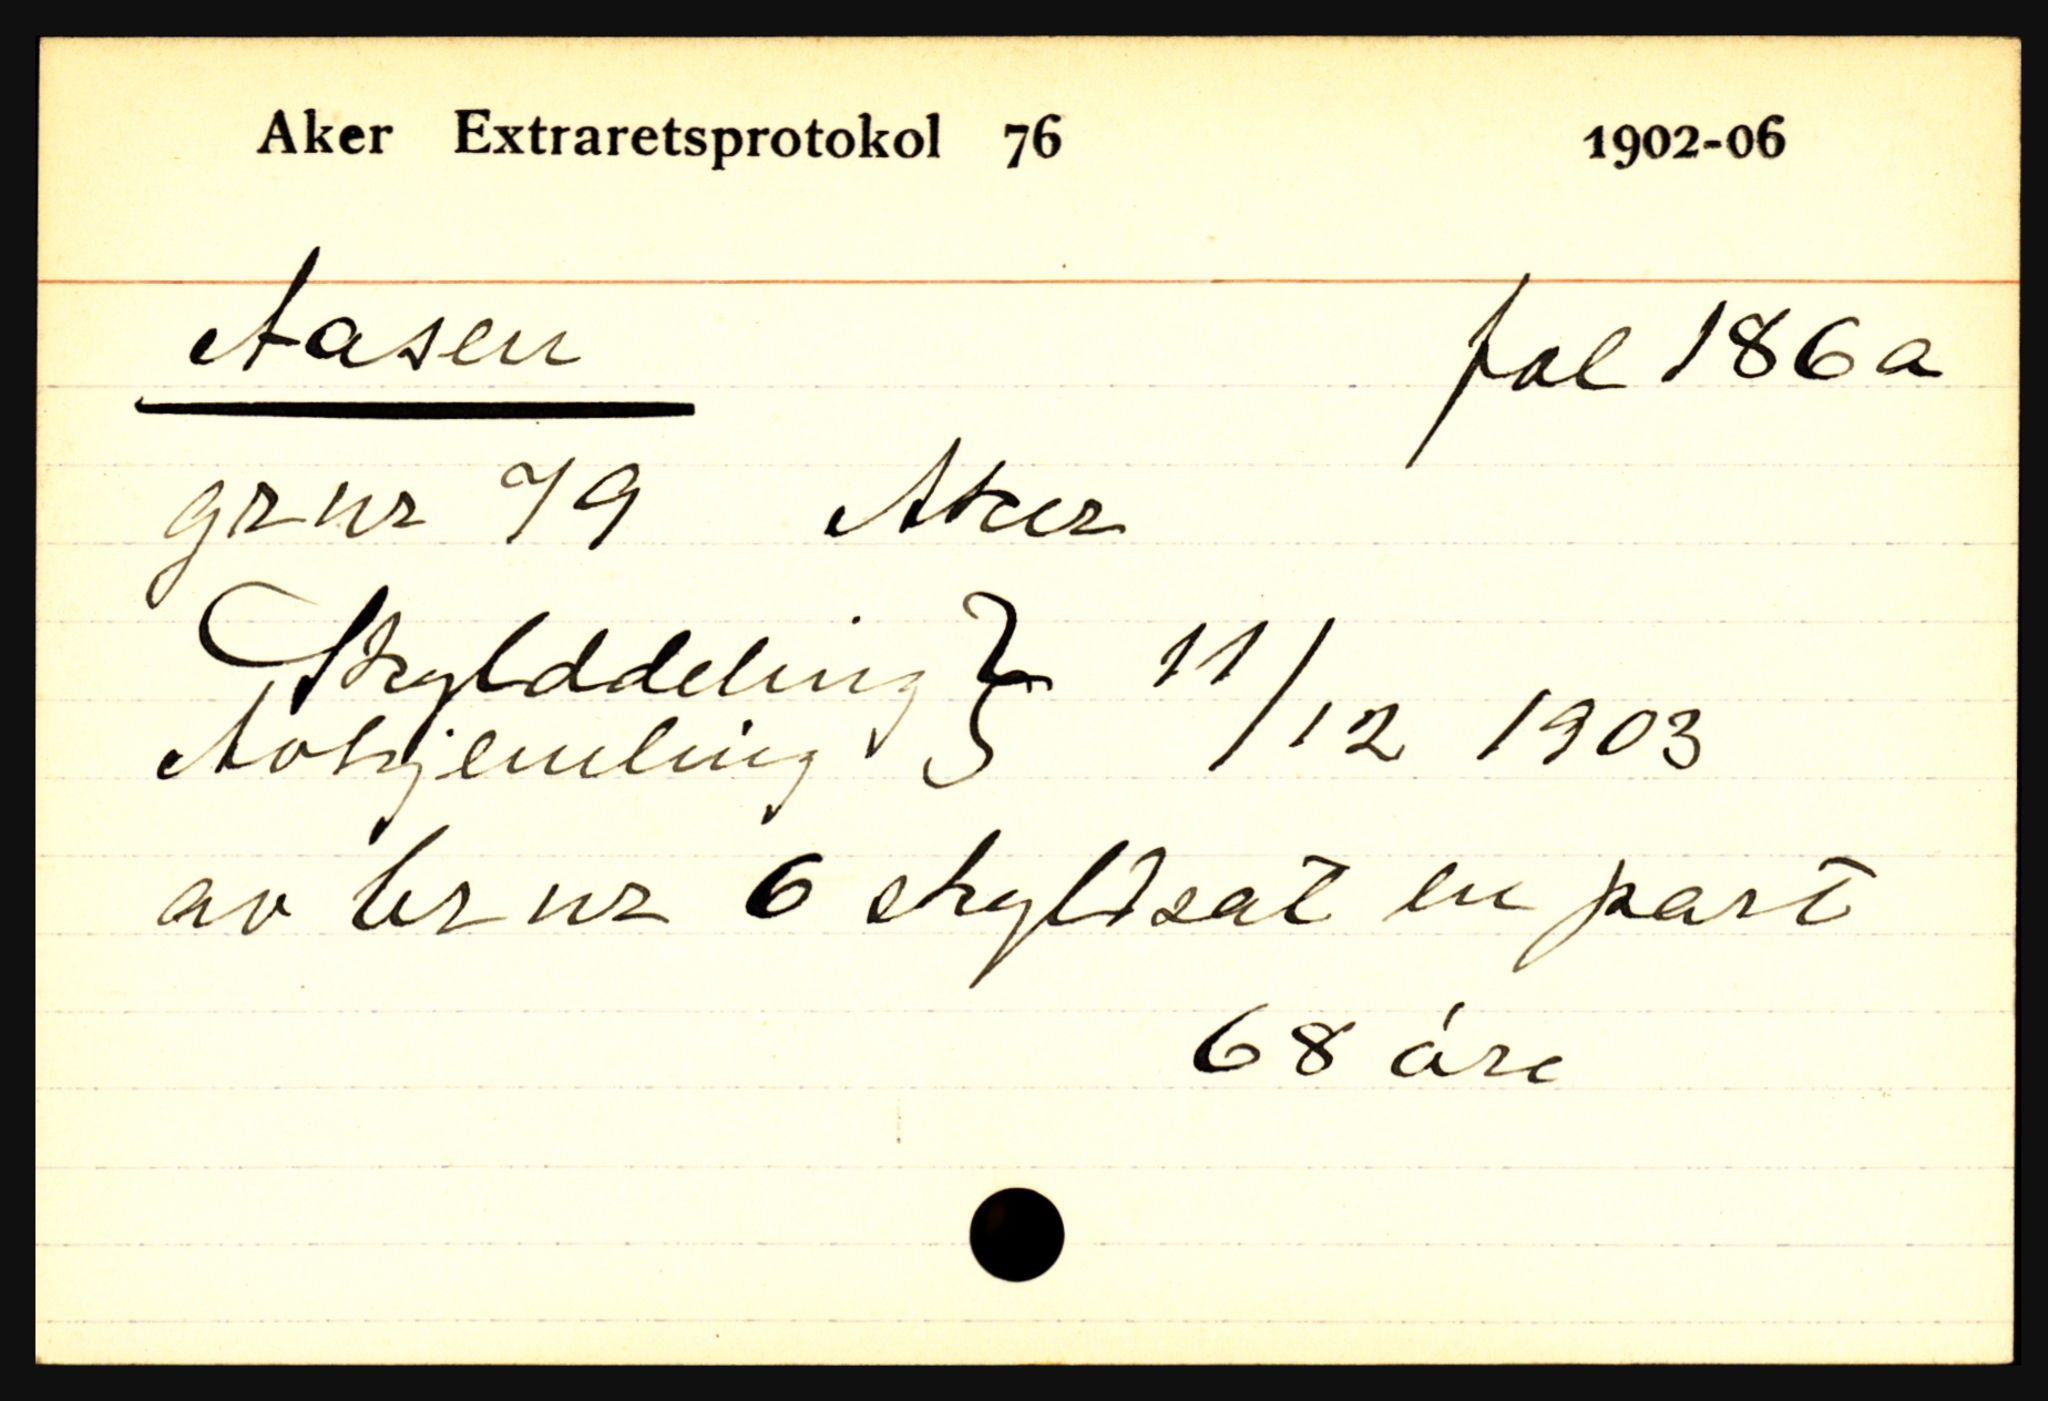 Aker Extraretsprotokol 76 1902-06
Aasen fol 186a
gr nr 79 Aker
Skylddeling } 11/12 1903
Avhjemling
av br nr 6 skyldsat en part
68 öre